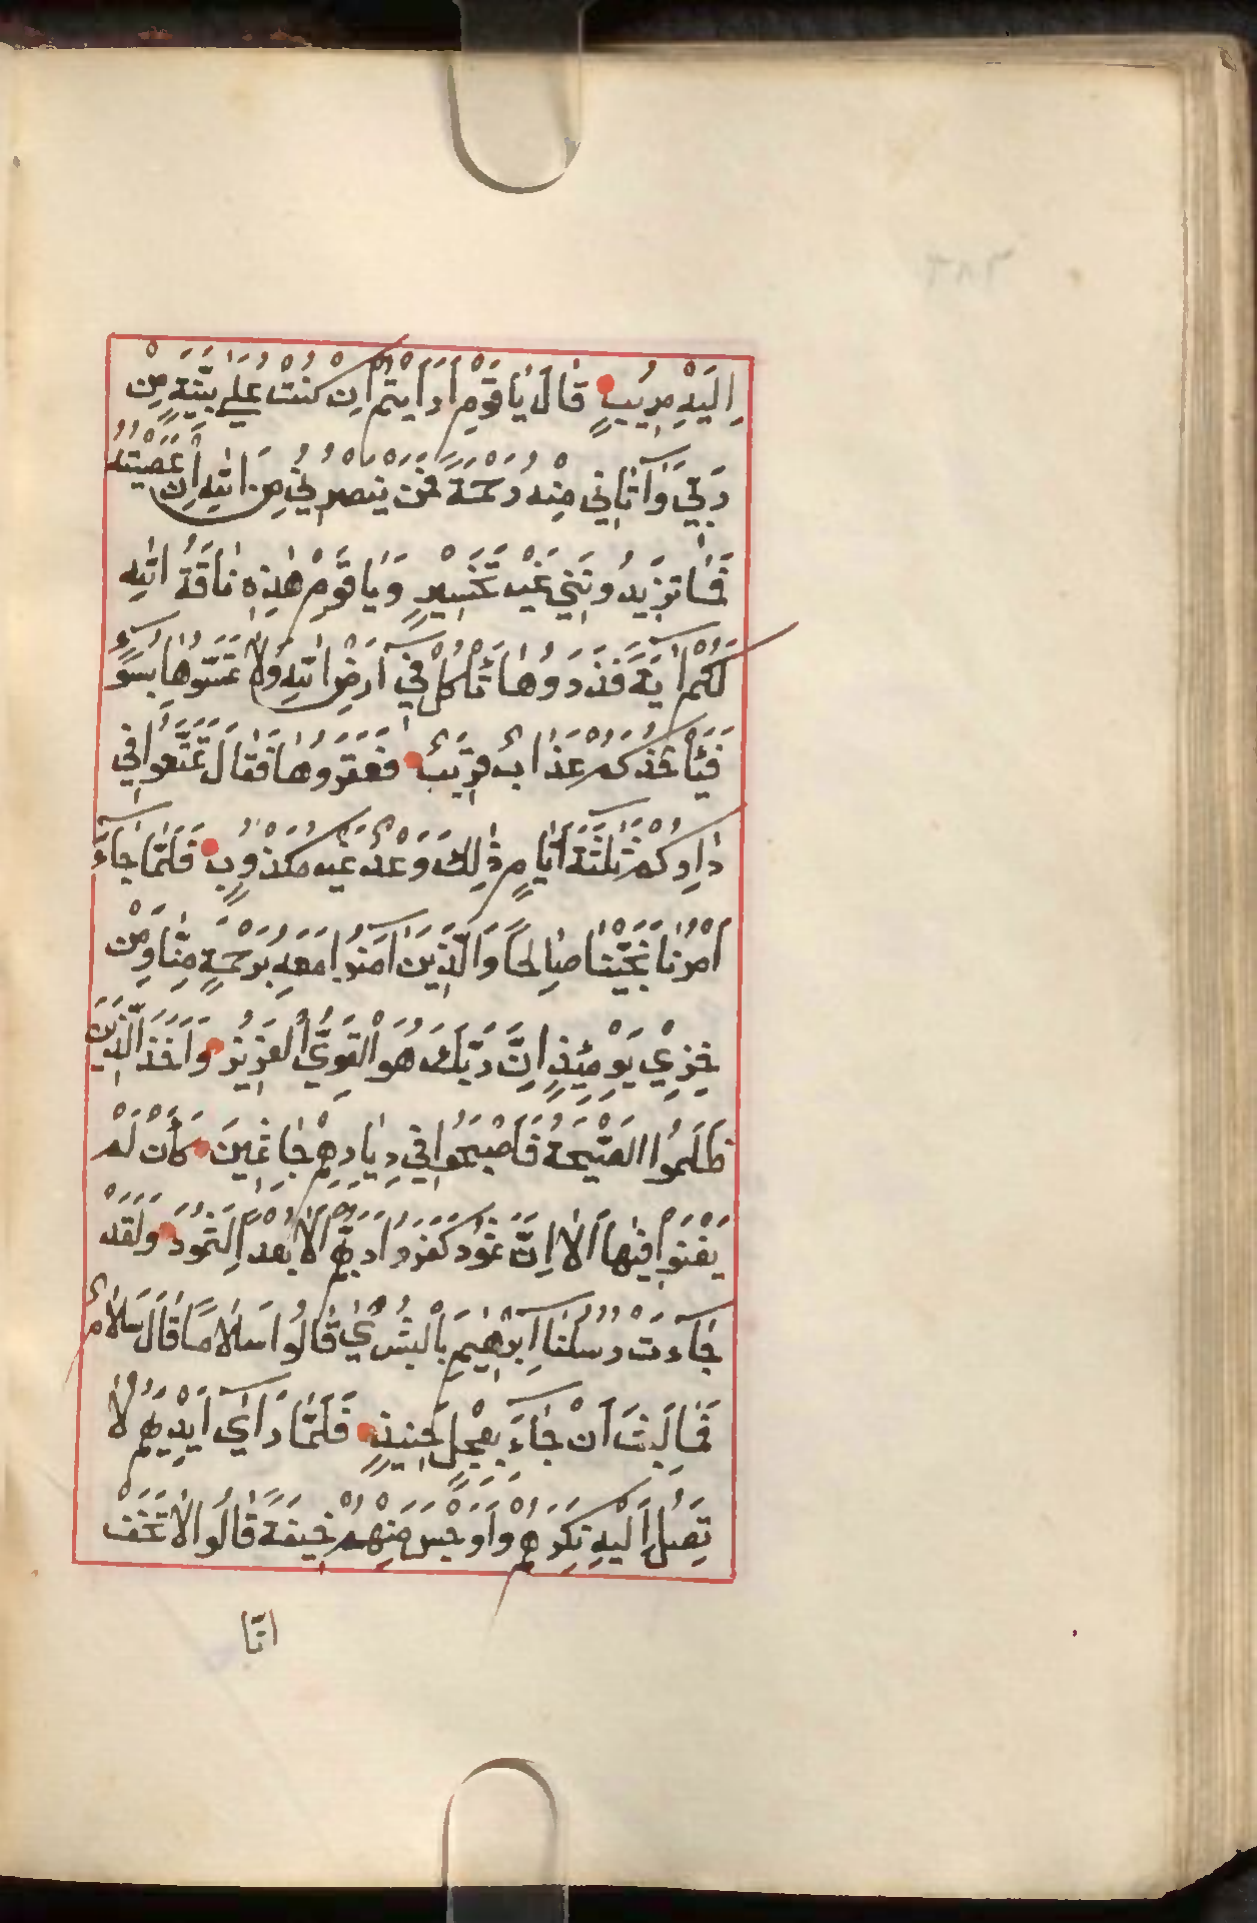 اِلَيْهِ مُرِيبٍ قَالَ يَا قَوْمِ اَرَاَيْتُمْ اِنْ كُنْتُ عَلٰى بَيِّنَةٍ مِنْ
رَبِّي وَآتَانِي مِنْهُ رَحْمَةً فَمَنْ يَنْصُرُنِي مِنَ اللّٰهِ اِنْ عَصَيْتُهُ
فَمَا تَزِيدُونَنِي غَيْرَ تَخْسِيرٍ وَيَا قَوْمِ هٰذِهِ نَاقَةُ اللّٰهِ
لَكُمْ اٰيَةً فَذَرُوهَا تَأْكُلْ فِي اَرْضِ اللّٰهِ وَلَا تَمَسُّوهَا بِسُوٓءٍ
فَيَأْخُذَكُمْ عَذَابٌ قَرِيبٌ فَعَقَرُوهَا فَقَالَ تَمَتَّعُوا فِي
دَارِكُمْ ثَلٰثَةَ اَيَّامٍ ذٰلِكَ وَعْدٌ غَيْرُ مَكْذُوبٍ فَلَمَّا جَآءَ
اَمْرُنَا نَجَّيْنَا صَالِحًا وَالَّذِينَ اٰمَنُوا مَعَهُ بِرَحْمَةٍ مِنَّا وَمِنْ
خِزْيِ يَوْمَئِذٍ اِنَّ رَبَّكَ هُوَ الْقَوِيُّ الْعَزِيزُ وَاَخَذَ الَّذِينَ
ظَلَمُوا الصَّيْحَةُ فَاَصْبَحُوا فِي دِيَارِهِمْ جَاثِمِينَ كَأَنْ لَمْ
يَغْنَوْا فِيهَا اَلَا اِنَّ ثَمُودَ كَفَرُوا رَبَّهُمْ اَلَا بُعْدًا لِثَمُودَ وَلَقَدْ
جَآءَتْ رُسُلُنَا اِبْرٰهِيمَ بِالْبُشْرٰى قَالُوا سَلَامًا قَالَ سَلَامٌ
فَمَا لَبِثَ اَنْ جَآءَ بِعِجْلٍ حَنِيذٍ فَلَمَّا رَآى اَيْدِيَهُمْ لَا
تَصِلُ اِلَيْهِ نَكِرَهُمْ وَاَوْجَسَ مِنْهُمْ خِيفَةً قَالُوا لَا تَخَفْ
انّا